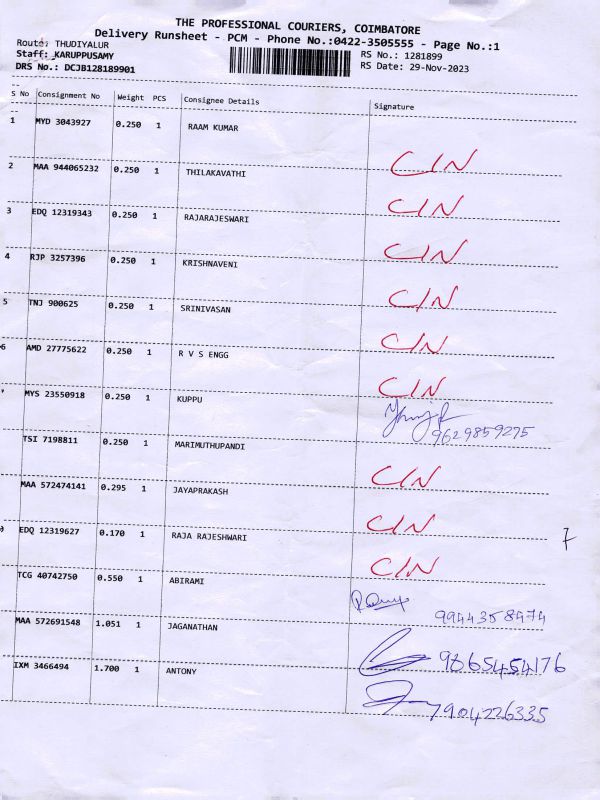 THE PROFESSIONAL COURIERS, COIMBATORE
Delivery Runsheet - PCM - Phone No.:0422-3505555 - Page No.:1
Route: THUDIYALUR
Staff: KARUPPUSAMY RS No.: 1281899
DRS No.: DCJB128189901 RS Date: 29-Nov-2023
S No Consignment No Weight PCS Consignee Details Signature
1 MYD 3043927 0.250 1 RAAM KUMAR C/N
2 MAA 944065232 0.250 1 THILAKAVATHI C/N
3 EDQ 12319343 0.250 1 RAJARAJESWARI C/N
4 RJP 3257396 0.250 1 KRISHNAVENI C/N
5 TNJ 900625 0.250 1 SRINIVASAN C/N
6 AMD 27775622 0.250 1 R V S ENGG C/N
MYS 23550918 0.250 1 KUPPU 9629859275
TSI 7198811 0.250 1 MARIMUTHUPANDI C/N
MAA 572474141 0.295 1 JAYAPRAKASH C/N
EDQ 12319627 0.170 1 RAJA RAJESHWARI C/N
7
TCG 40742750 0.550 1 ABIRAMI 9944358474
MAA 572691548 1.051 1 JAGANATHAN 9865454176
IXM 3466494 1.700 1 ANTONY 7904226335